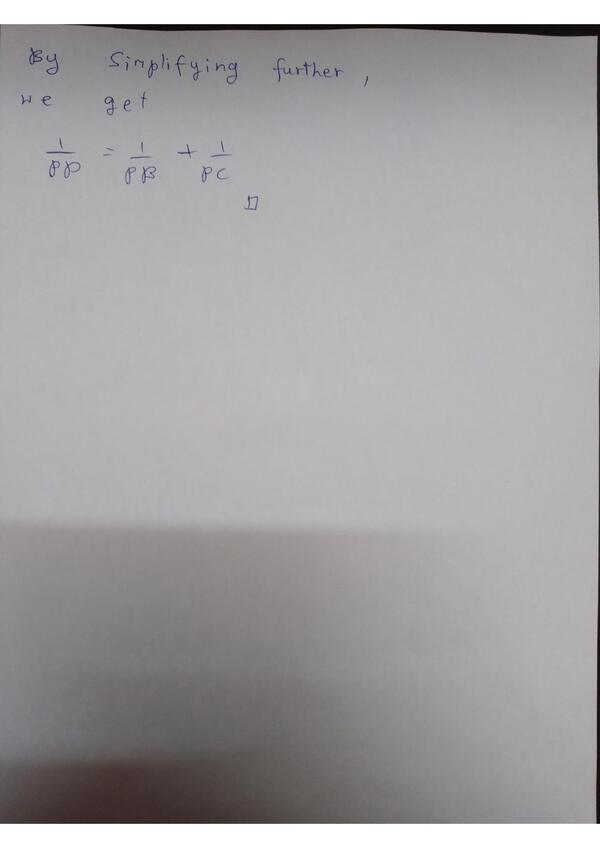 By Simplifying further,
we get
1/PD = 1/PB + 1/PC
□